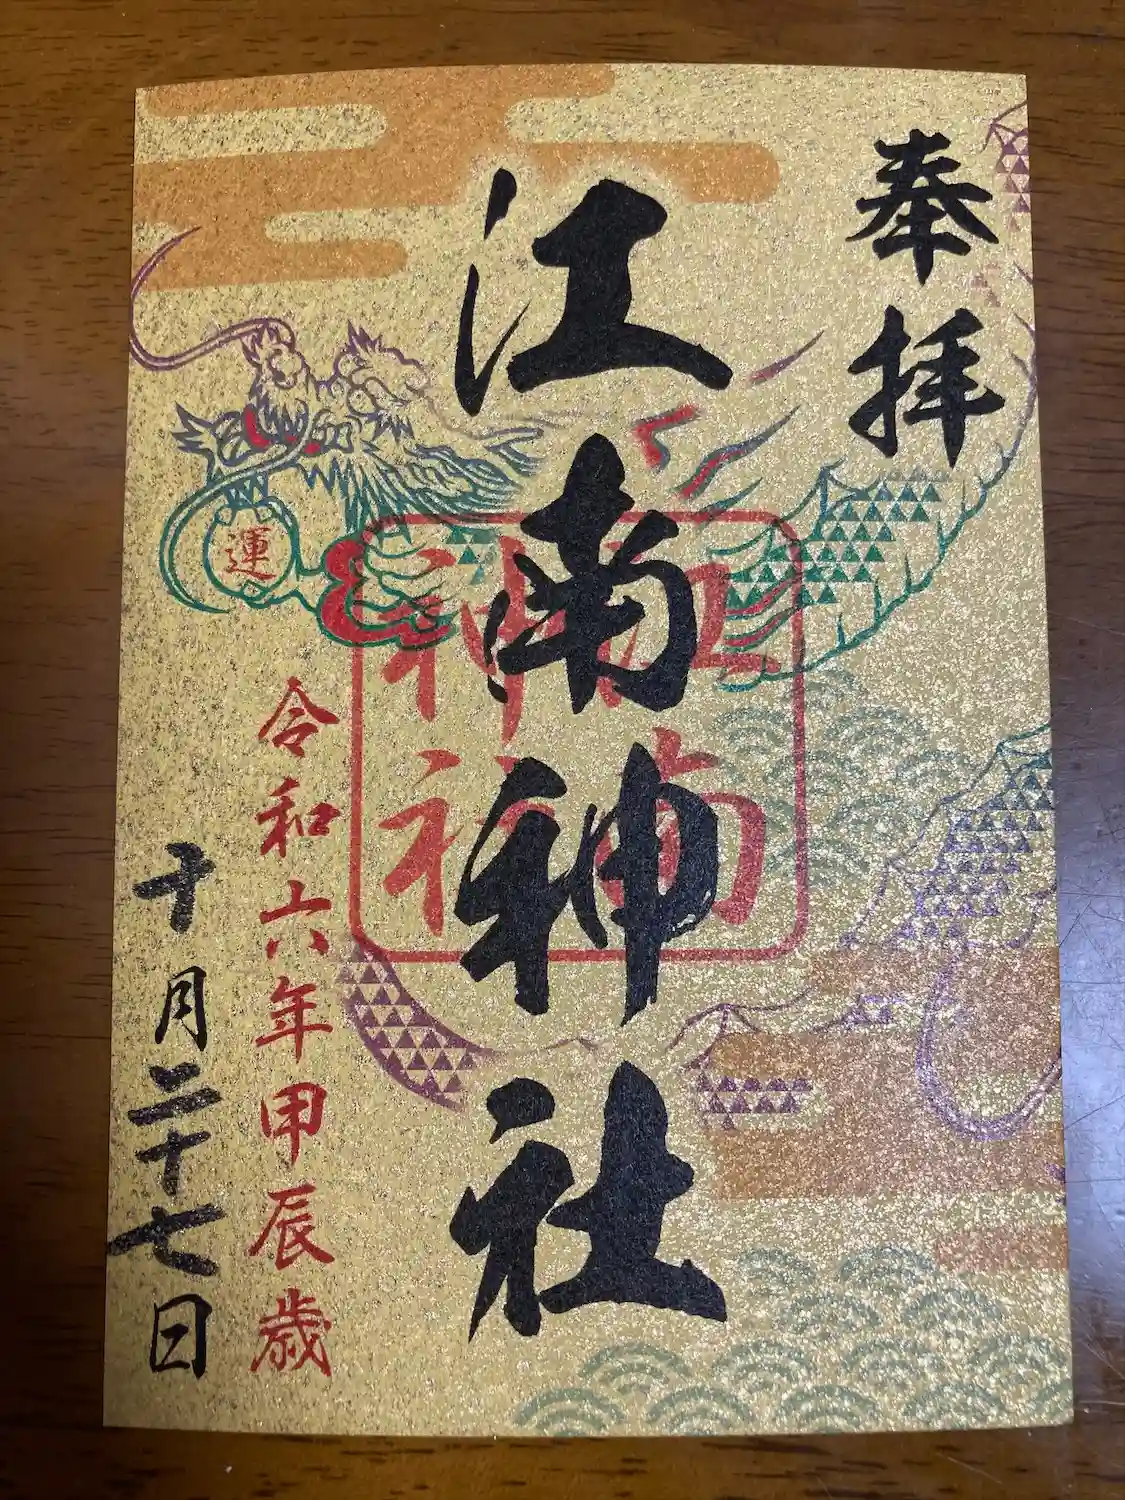 奉拝
江南神社
江南
神社
運
令和六年甲辰歳
十月二十七日